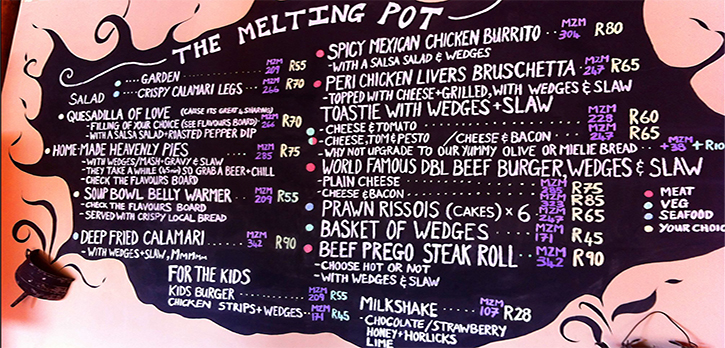 THE MELTING POT
SALAD
GARDEN MZM 209 R55
CRISPY CALAMARI LEGS MZM 266 R70
QUESADILLA OF LOVE (CAUSE ITS GREAT 4 SHARING)
-FILLING OF YOUR CHOICE (SEE FLAVOURS BOARD) MZM 266 R70
-WITH A SALSA SALAD + ROASTED PEPPER DIP
HOME-MADE HEAVENLY PIES MZM 285 R75
-WITH WEDGES/MASH+GRAVY & SLAW
-THEY TAKE A WHILE (45min) SO GRAB A BEER + CHILL
-CHECK THE FLAVOURS BOARD
SOUP BOWL BELLY WARMER MZM 209 R55
-CHECK THE FLAVOURS BOARD
-SERVED WITH CRISPY LOCAL BREAD
DEEP FRIED CALAMARI MZM 342 R90
-WITH WEDGES+SLAW, MMmmm
FOR THE KIDS
KIDS BURGER MZM 209 R55
CHICKEN STRIPS+WEDGES MZM 171 R45
SPICY MEXICAN CHICKEN BURRITO MZM 304 R80
-WITH A SALSA SALAD & WEDGES
PERI CHICKEN LIVERS BRUSCHETTA MZM 247 R65
-TOPPED WITH CHEESE+GRILLED, WITH WEDGES & SLAW
TOASTIE WITH WEDGES + SLAW
-CHEESE & TOMATO MZM 228 R60
-CHEESE, TOM & PESTO / CHEESE & BACON MZM 247 R65
-WHY NOT UPGRADE TO OUR YUMMY OLIVE OR MIELIE BREAD MZM +38 + R10
WORLD FAMOUS DBL BEEF BURGER, WEDGES & SLAW
-PLAIN CHEESE MZM 285 R75
-CHEESE & BACON MZM 323 R85
PRAWN RISSOIS (CAKES) x 6 MZM 247 R65
BASKET OF WEDGES MZM 171 R45
BEEF PREGO STEAK ROLL MZM 342 R90
-CHOOSE HOT OR NOT
-WITH WEDGES & SLAW
MILKSHAKE MZM 107 R28
-CHOCOLATE/STRAWBERRY
HONEY+HORLICKS
LIME
MEAT
VEG
SEAFOOD
YOUR CHOIC